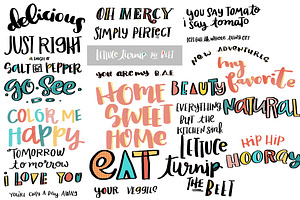 delicious
JUST RIGHT
a touch of
SALT and PEPPER
go see
COLOR ME
HAPPY
TOMORROW
tomorrow
i LOVE YOU
YOU'RE ONLY A DAY AWAY
OH MERCY
SIMPLY PERFECT
LETTUCE turnip THE BEET
YOU ARE MY B.A.E.
HOME
SWEET
HOME
EAT
YOUR VEGGIE
you say tomato
i say tomato
NEW ADVENTURES
my
favorite
BEAUTY
NATURAL
EVERYTHING
BUT THE
KITCHEN SINK
LETTUCE
turnip
THE BEET
HIP HIP
HOORAY